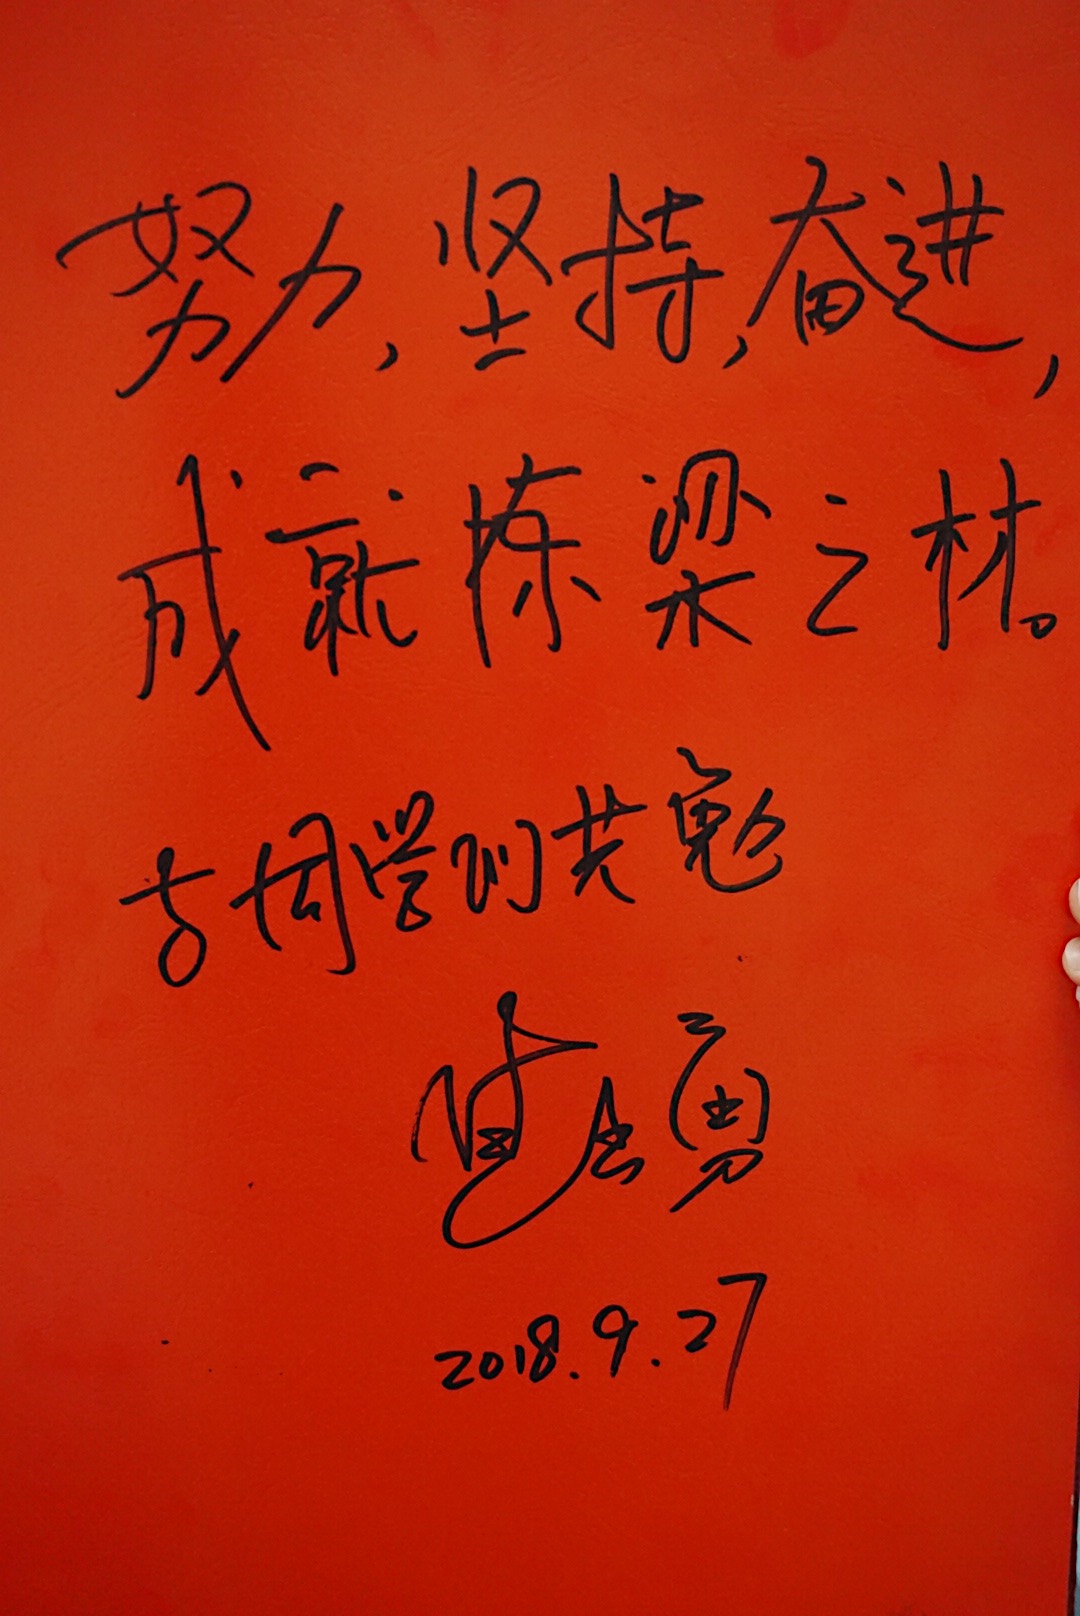 努力,坚持,奋进,
成就栋梁之材。
与同学们共勉
2018.9.27